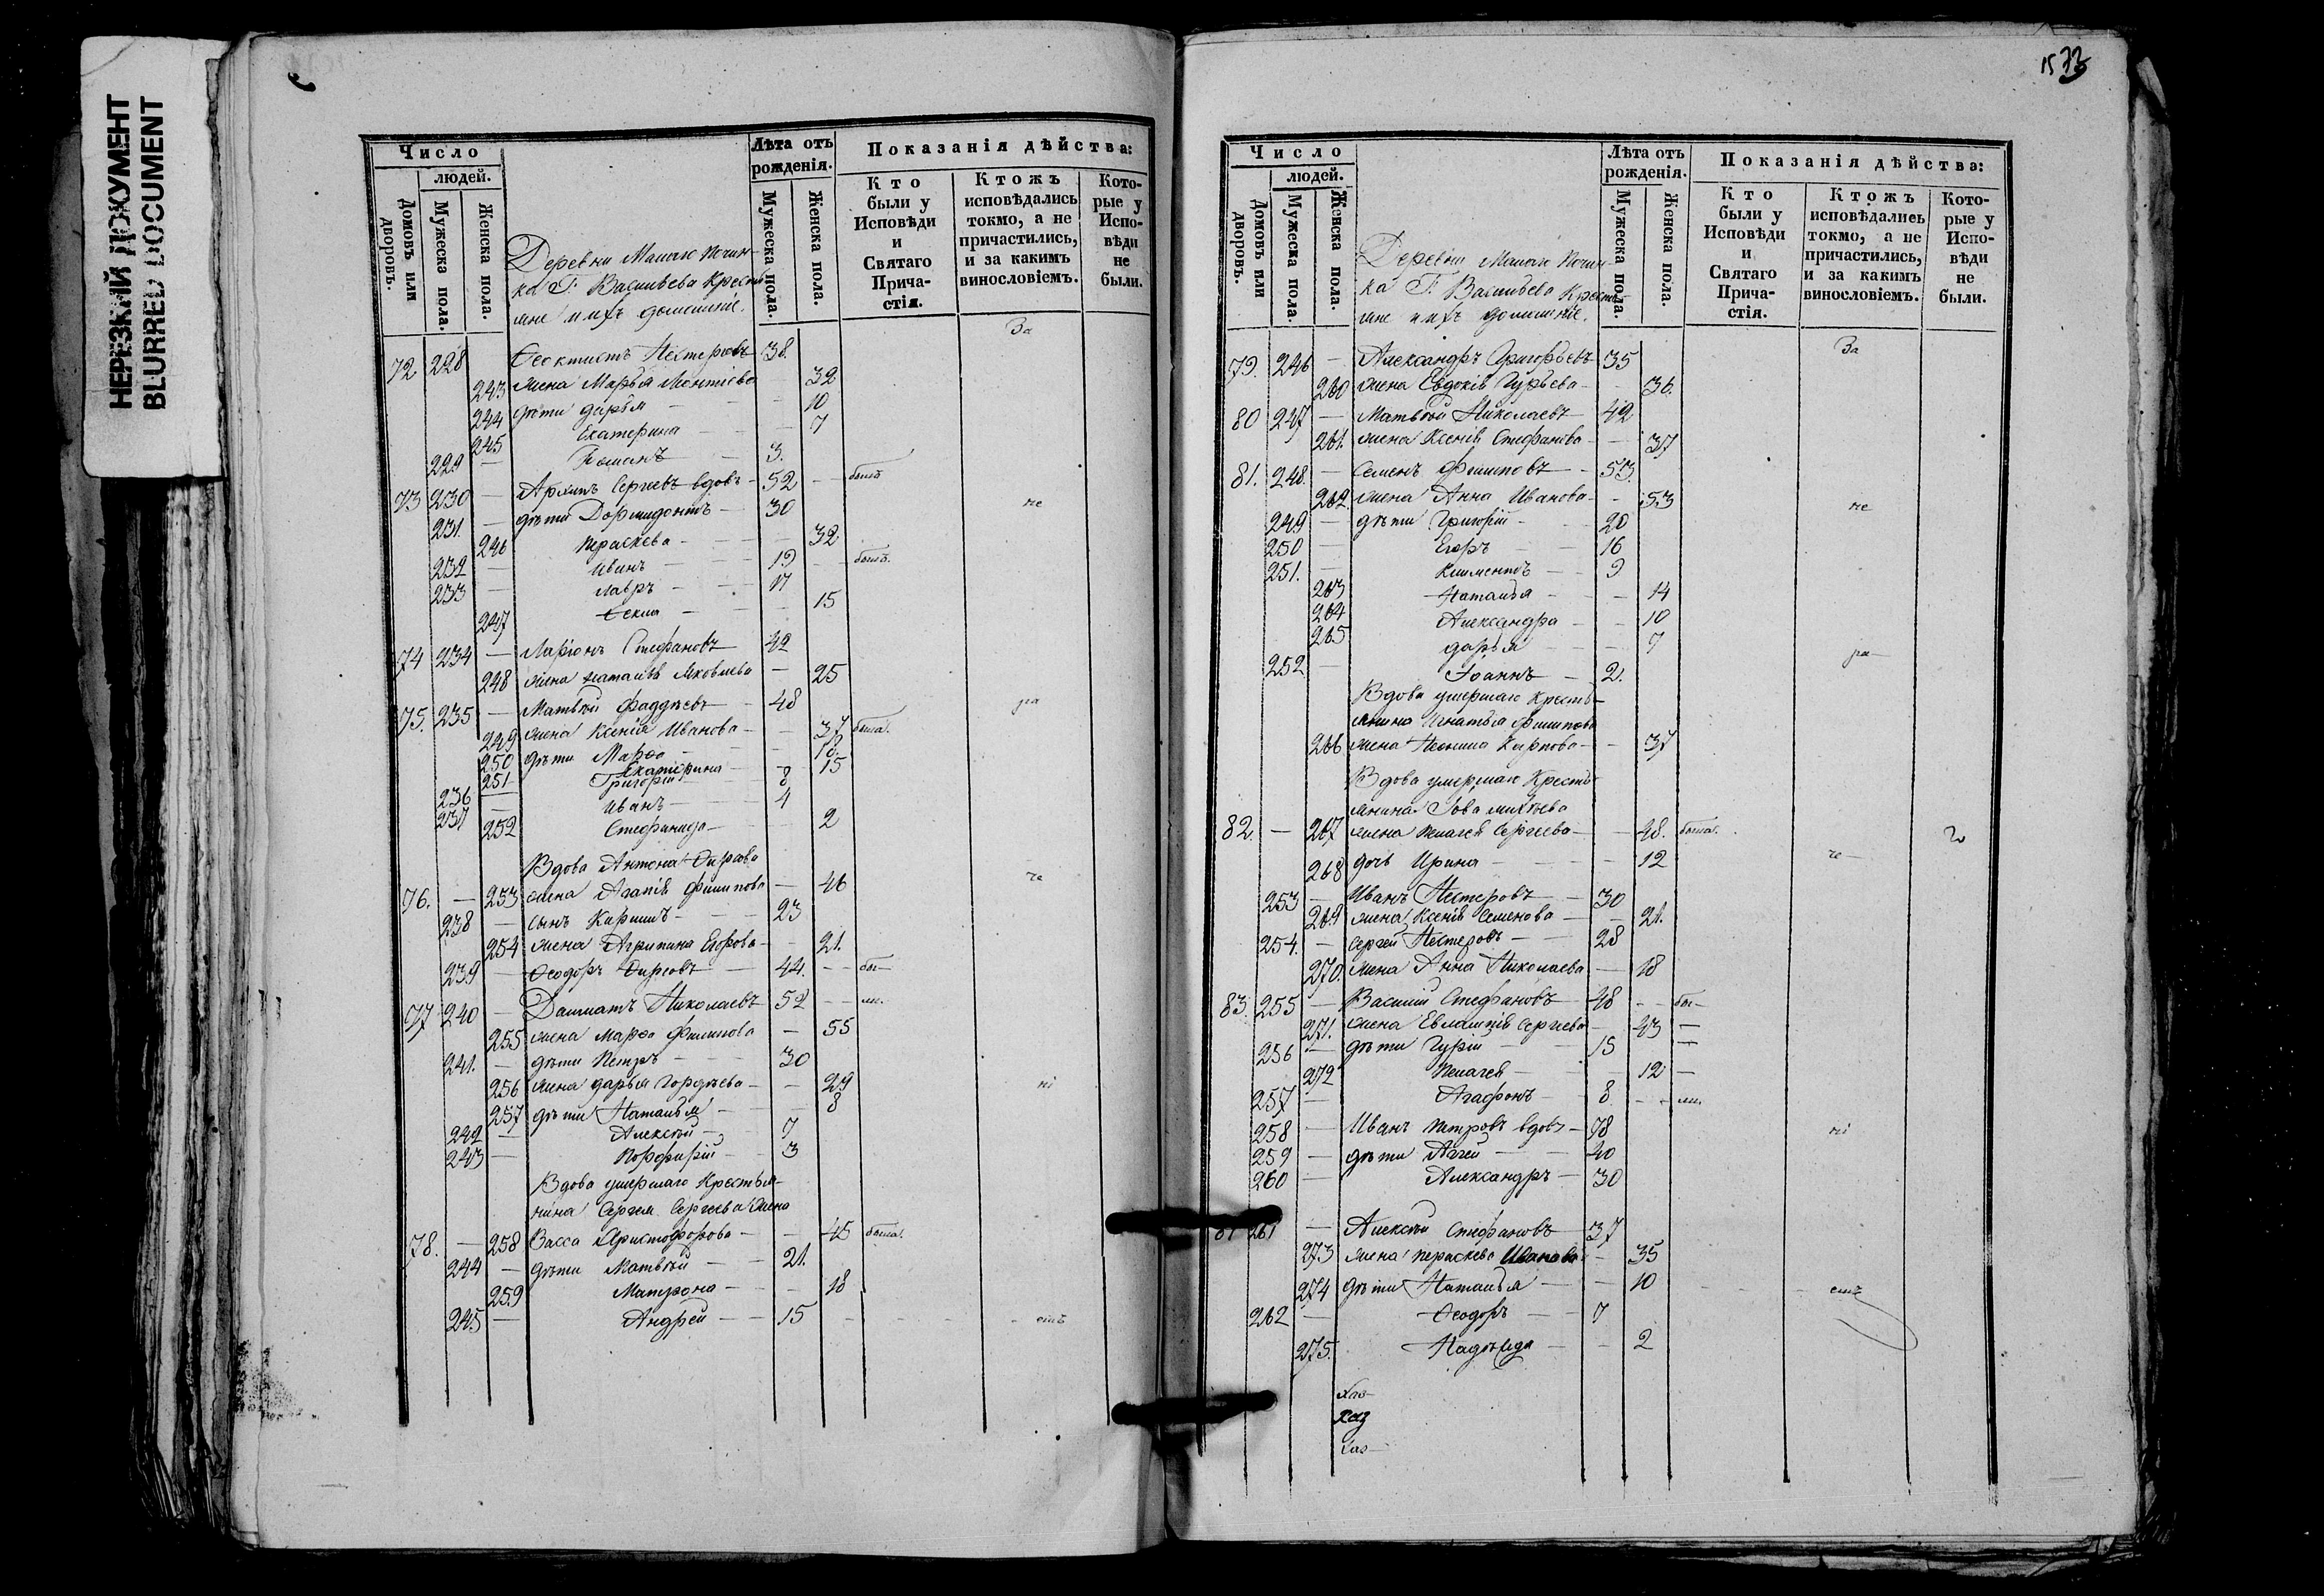 НЕРЕЗКИЙ ДОКУМЕНТ
BLURRED DOCUMENT
Число
людей.
Домовъ или дворовъ.
Мужеска пола.
Женска пола.
Деревни Малаго Почин-
ка Г. Васильева Крестья
яне и ихъ домашніе.
Лѣта отъ рожденія.
Мужеска пола.
Женска пола.
Показанія дѣйства:
Кто были у Исповѣди и Святаго Прича-стія.
Ктожъ исповѣдались токмо, а не причастились, и за какимъ винословіемъ.
Кото-рые у Испо-вѣди не были.
За
72 228 Ѳеоктистъ Нестеровъ 38.
243 жена Марья Леонтіева — 32
244 дѣти Дарья — — 10
245 Екатерина — — 7
229 — Романъ — 3.
73 230 — Архипъ Сергѣевъ вдовъ — 52 — былъ
231. — дѣти Дормидонтъ — 30 не
246 Пераскева — — 32
232 — Иванъ — 19 — былъ.
233 — Лавръ — 17
247 Ѳекла — — 15
74 234 — Ларіонъ Стефановъ 42
248 жена Наталія Яковлева — 25
75. 235 — Матвѣй Фаддѣевъ — 48 ра
249 жена Ксенія Иванова — — 37 была.
250 дѣти Марѳа — — 18.
251 Екатерина — 15
236 — Григорій — 8
237 — Иванъ — 4
252 Стефанида — — 2
Вдова Антона Фирсова
76. — 253 жена Агапія Филипова — 46 че
238 — сынъ Кирилъ — 23
254 жена Агрипина Егорова — — 21.
239 — Ѳеодоръ Фирсовъ — 44. — — бы—
77 240 — Далматъ Николаевъ 52 — — ли.
255 жена Марѳа Филипова — 55
241. — дѣти Петръ — 30
256 жена Дарья Гордѣева — — 29 ні
257 дѣти Наталья — — 8
242 — Алексѣй — 7
243 — Порфирій — 3
Вдова умершаго Крестья-
нина Сергея Сергеева жена
78. — 258 Васса Христофорова — — 45 была.
244 — дѣти Матвѣй — 21.
259 Матрона — — 18
245 — Андрей — 15 — емъ
Число
людей.
Домовъ или дворовъ.
Мужеска пола.
Женска пола.
Деревни Малаго Почин-
ка Г. Васильева Крестья
яне и ихъ домашніе.
Лѣта отъ рожденія.
Мужеска пола.
Женска пола.
Показанія дѣйства:
Кто были у Исповѣди и Святаго Прича-стія.
Ктожъ исповѣдались токмо, а не причастились, и за какимъ винословіемъ.
Кото-рые у Испо-вѣди не были.
За
79. 246 — Александръ Григорьевъ 35
260 жена Евдокія Гурьева — — 36.
80 247 — Матвѣй Николаевъ — 42
261. жена Ксенія Стефанова — — 37
81. 248. — Семенъ Филиповъ — 53.
262. жена Анна Иванова — — 53 не
249 — дѣти Григорій — — 20
250 — Егоръ — 16
251. — Климентъ — 9
263 Наталья — — 14
264 Александра — — 10
265 Дарья — — 7
252 — Іоаннъ — 2. ра—
Вдова умершаго Кресть-
янина Игнатья Филипова
266 жена Неонила Карпова — — 37
Вдова умершаго Кресть-
янина Іова Михѣева
82. — 267 жена Пелагея Сергеева — — 48. была.
268 дочь Ирина — — 12 че—
253 — Иванъ Нестеровъ — 30
269 жена Ксенія Семенова — — 21.
254. — Сергей Нестеровъ — 28
270. жена Анна Николаева — 18
83. 255 — Василій Стефановъ — 48 — — бы—
271. жена Евлампія Сергеева — 43 —
256 — дѣти Гурій — 15 —
272 Пелагея — — 12 —
257 — Агафонъ — 8 — — ли
258 — Иванъ Петровъ вдовъ — 78 ні
259 — дѣти Аггей — 40
260 — Александръ — 30
261 — Алексѣй Стефановъ 37
273 жена Пераскева Иванова — 35
274 дѣти Наталья — — 10 емъ
262 — Ѳеодоръ — 7
275. Надежда — — 2